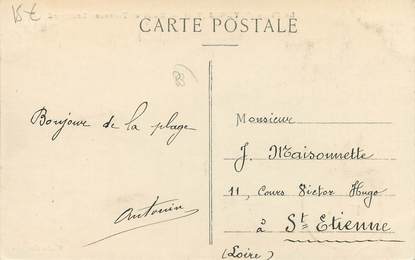 15€
CARTE POSTALE
Bonjour de la plage
Antonin
Monsieur
J. Maisonnette
11, Cours Victor Hugo
à St Etienne
(Loire)